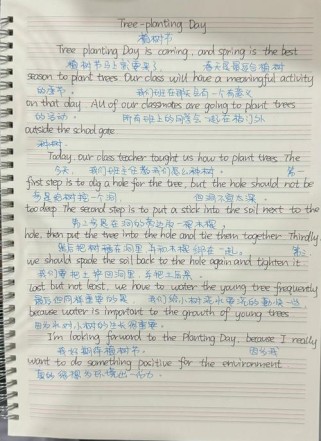 Tree-planting Day
植树节
Tree planting Day is coming, and spring is the best
植树节马上就要来了, 春天是最适合植树
season to plant trees. Our class will have a meaningful activity
的季节。 我们班在那天会有一个有意义
on that day. All of our classmates are going to plant trees
的活动。 所有班上的同学在一起在校门外
outside the school gate.
种树.
Today, our class teacher taught us how to plant trees. The
今天, 我们班主任教我们怎么种树. 第一
first step is to dig a hole for the tree, but the hole should not be
步是给树挖一个洞, 但洞不要太深.
too deep. The second step is to put a stick into the soil next to the
第二步是在洞的旁边插一根木棍,
hole, then put the tree into the hole and tie them together. Thirdly
然后把树放在洞里与和木棍绑在一起。 第三
we should spade the soil back to the hole again and tighten it.
我们要把土铲回洞里, 再把土压紧.
Last but not least, we have to water the young tree frequently
最后但同样重要的是, 我们给小树浇水要浇的勤快一些
because water is important to the growth of young trees
因为水对小树的生长很重要.
I'm looking forward to the Planting Day, because I really
我好期待植树节, 因为我
want to do something positive for the environment.
真的很想为环境出一份力.